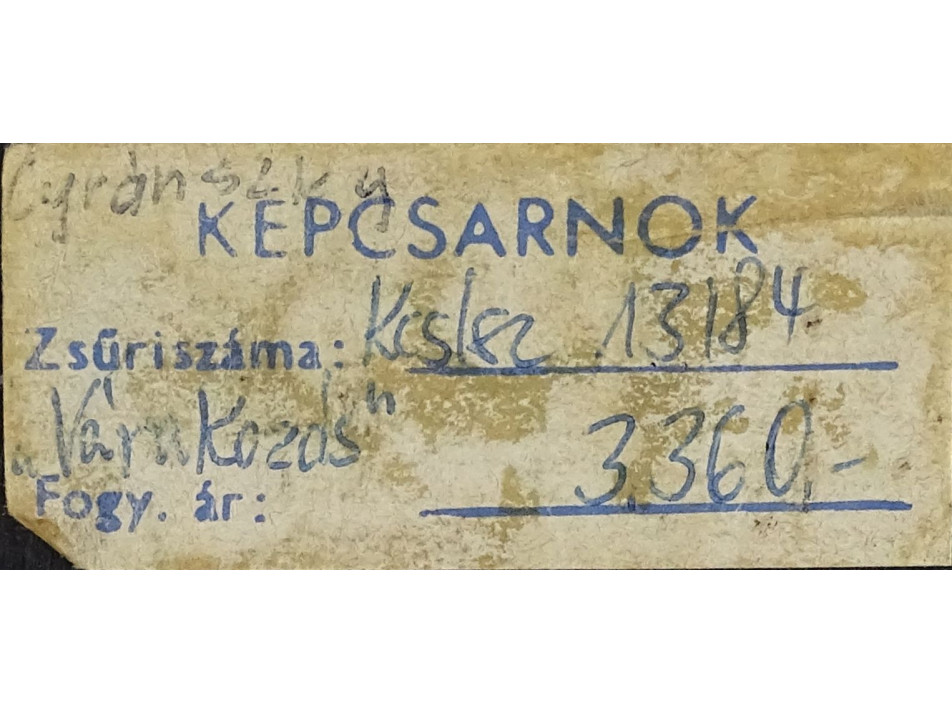 Gyránszky
KÉPCSARNOK
Zsűriszáma: 13184
„Várakozás”
Fogy. ár: 3.360,-